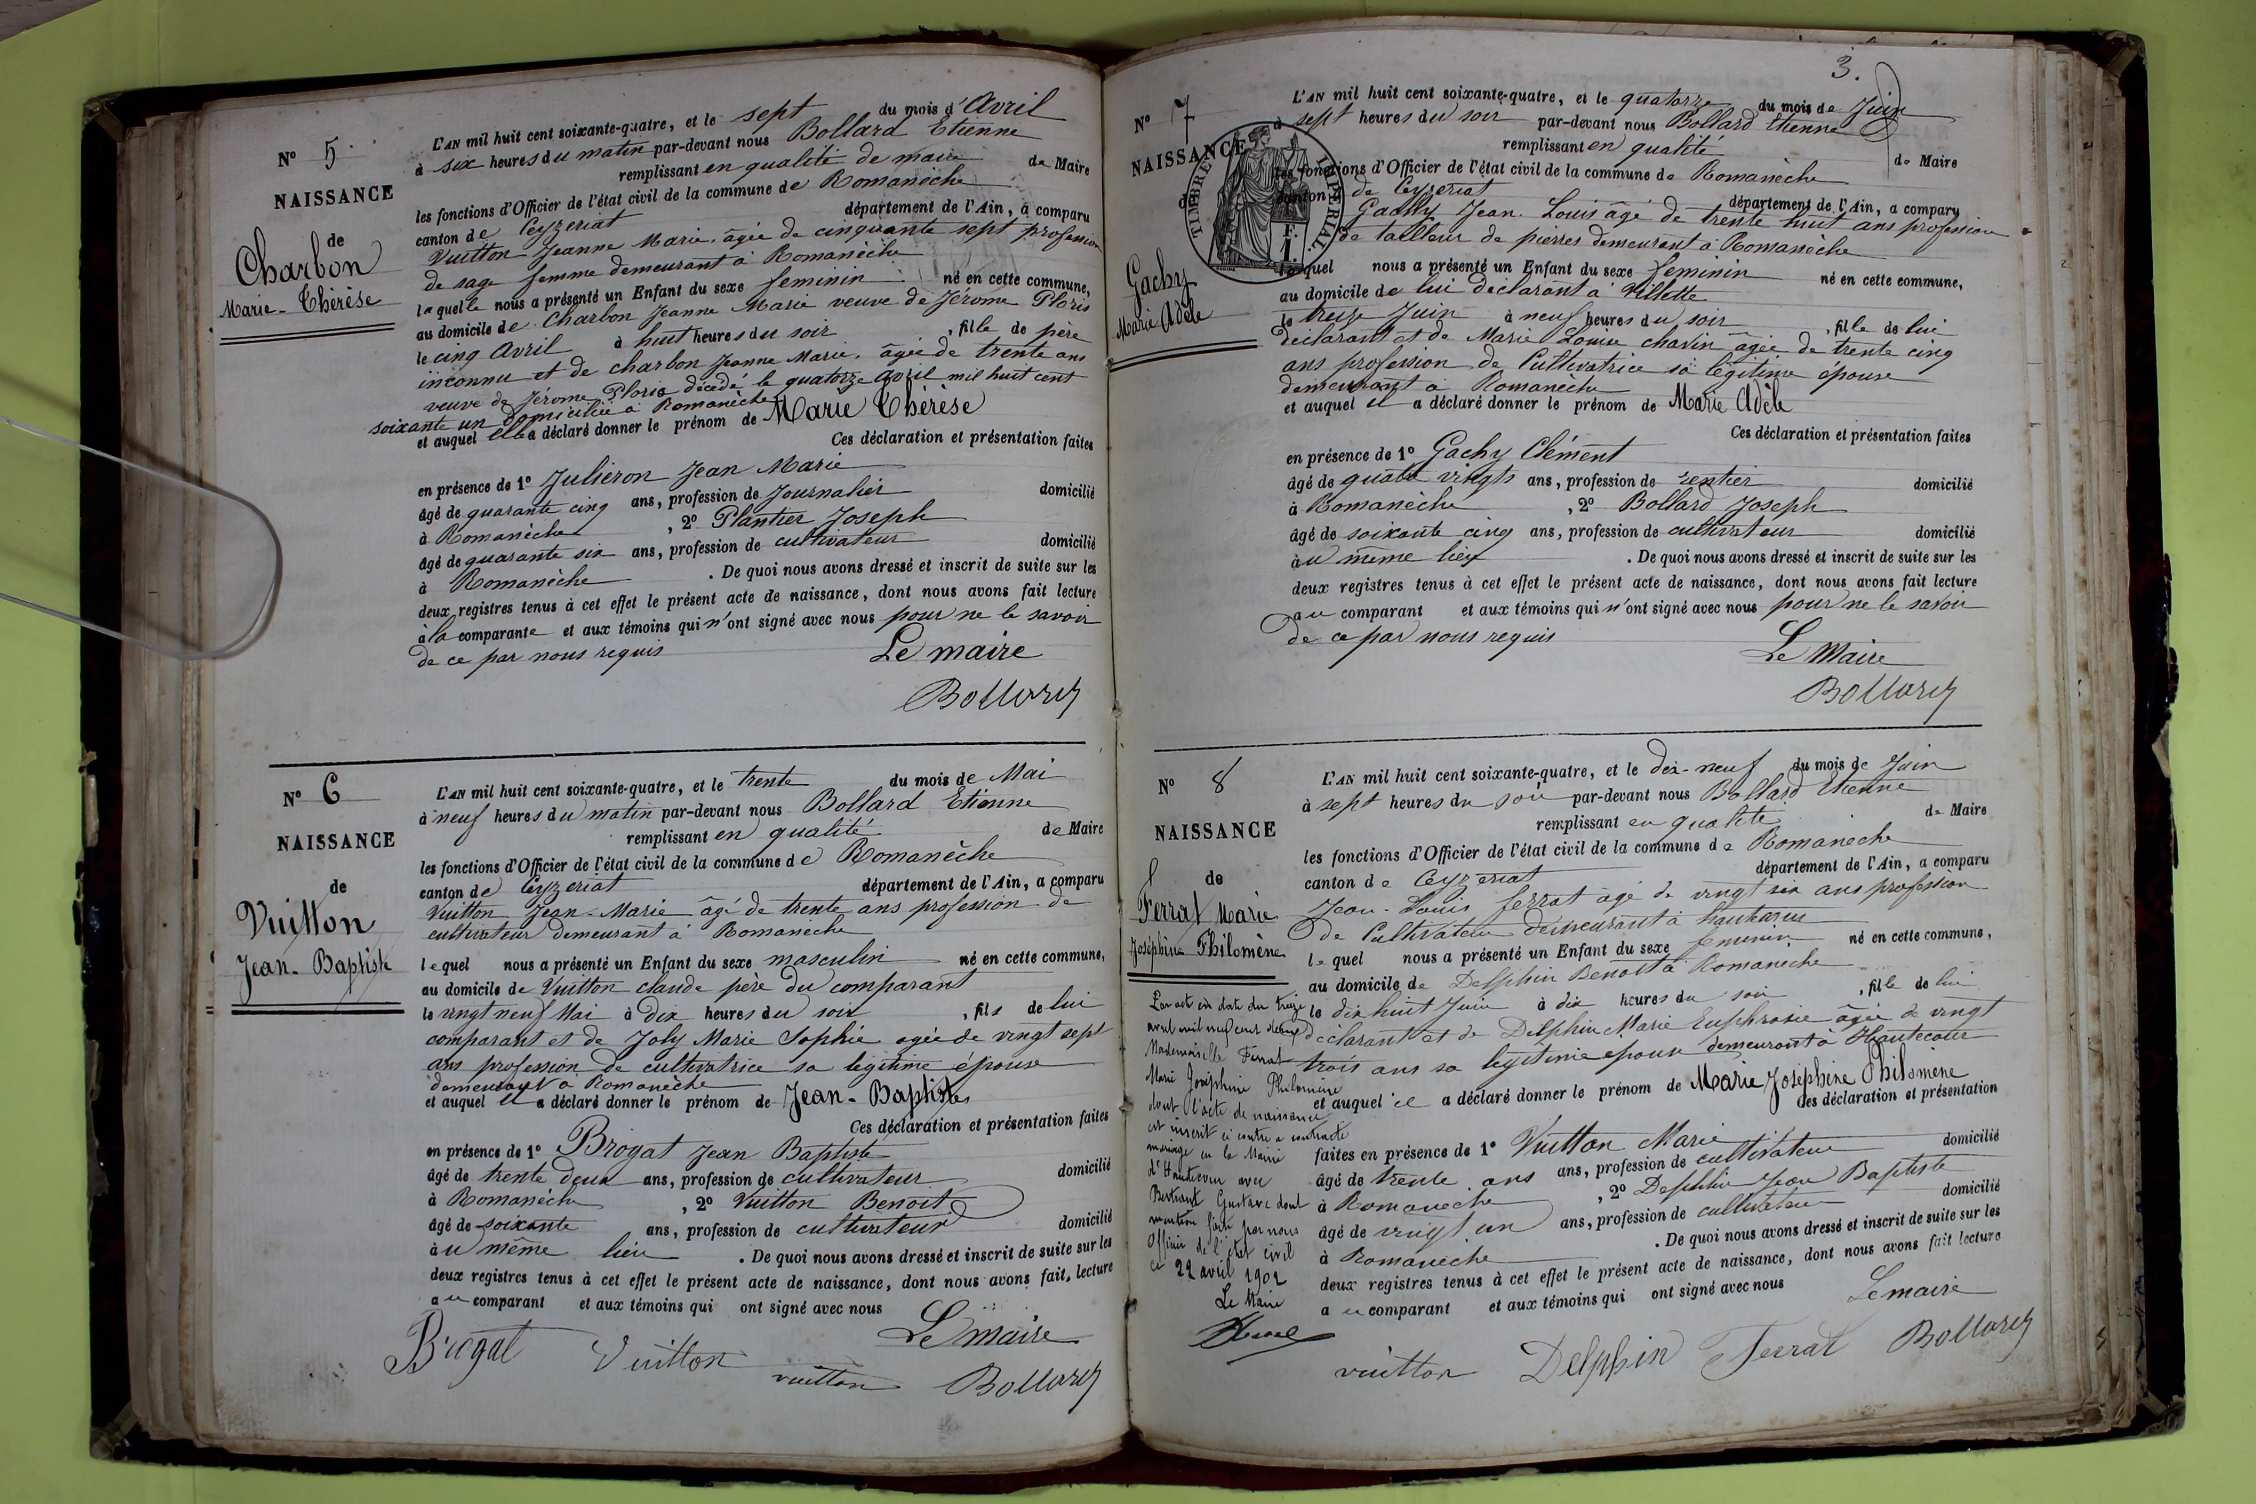 N° 5
NAISSANCE
de
Charbon
Marie-Thérèse
L'AN mil huit cent soixante-quatre, et le sept du mois d'Avril
à six heures du matin par-devant nous Bollard Etienne
remplissant en qualité de maire de Maire
les fonctions d'Officier de l'état civil de la commune de Romanèche
canton de Ceyzeriat département de l'Ain, a comparu
Vuitton Jeanne Marie, âgée de cinquante sept profession
de sage femme demeurant à Romanèche
laquelle nous a présenté un Enfant du sexe feminin né en cette commune,
au domicile de Charbon Jeanne Marie veuve de Jérome Ploris
le cinq Avril à huit heures du soir, fille de père
inconnu et de charbon Jeanne Marie, âgée de trente ans
veuve de Jérome Ploris décedé le quatorze avril mil huit cent
soixante un domiciliée à Romanèche
et auquel elle a déclaré donner le prénom de Marie Thérèse
Ces déclaration et présentation faites
en présence de 1° Julieron Jean Marie
âgé de quarante cinq ans, profession de Journalier domicilié
à Romanèche, 2° Plantier Joseph
âgé de quarante six ans, profession de cultivateur domicilié
à Romanèche. De quoi nous avons dressé et inscrit de suite sur les
deux registres tenus à cet effet le présent acte de naissance, dont nous avons fait lecture
à la comparante et aux témoins qui n'ont signé avec nous pour ne le savoir
de ce par nous requis Le maire
Bollard
N° 6
NAISSANCE
de
Vuitton
Jean-Baptiste
L'AN mil huit cent soixante-quatre, et le trente du mois de Mai
à neuf heures du matin par-devant nous Bollard Etienne
remplissant en qualité de Maire
les fonctions d'Officier de l'état civil de la commune de Romanèche
canton de Ceyzeriat département de l'Ain, a comparu
Vuitton Jean-Marie âgé de trente ans profession de
cultivateur demeurant à Romanèche
lequel nous a présenté un Enfant du sexe masculin né en cette commune,
au domicile de Vuitton claude père du comparant
le vingt neuf Mai à dix heures du soir, fils de lui
comparant et de Joly Marie Sophie agée de vingt sept
ans profession de cultivatrice sa légitime épouse
demeurant à Romanèche
et auquel il a déclaré donner le prénom de Jean-Baptiste
Ces déclaration et présentation faites
en présence de 1° Brogat Jean Baptiste
âgé de trente deux ans, profession de cultivateur domicilié
à Romanèche, 2° Vuitton Benoit
âgé de soixante ans, profession de cultivateur domicilié
au même lieu. De quoi nous avons dressé et inscrit de suite sur les
deux registres tenus à cet effet le présent acte de naissance, dont nous avons fait lecture
au comparant et aux témoins qui ont signé avec nous
Le maire
Brogat Vuitton vuitton Bollard
3.
N° 7
NAISSANCE
de
Gachy
Marie Adèle
TIMBRE IMPERIAL.
1 F.
L'AN mil huit cent soixante-quatre, et le quatorze du mois de Juin
à sept heures du soir par-devant nous Bollard Etienne
remplissant en qualité de Maire
les fonctions d'Officier de l'état civil de la commune de Romanèche
canton de Ceyzeriat département de l'Ain, a comparu
Gachy Jean-Louis âgé de trente huit ans profession
de tailleur de pierres demeurant à Romanèche
lequel nous a présenté un Enfant du sexe feminin né en cette commune,
au domicile de lui déclarant à Villette
le treize Juin à neuf heures du soir, fille de lui
déclarant et de Marie Louise chavin âgée de trente cinq
ans profession de Cultivatrice sa légitime épouse
demeurant à Romanèche
et auquel il a déclaré donner le prénom de Marie Adèle
Ces déclaration et présentation faites
en présence de 1° Gachy Clément
âgé de quatre vingts ans, profession de rentier domicilié
à Romanèche, 2° Bollard Joseph
âgé de soixante cinq ans, profession de cultivateur domicilié
au même lieu. De quoi nous avons dressé et inscrit de suite sur les
deux registres tenus à cet effet le présent acte de naissance, dont nous avons fait lecture
au comparant et aux témoins qui n'ont signé avec nous pour ne le savoir
de ce par nous requis
Le Maire
Bollard
N° 8
NAISSANCE
de
Ferrat Marie
Joséphine Philomène
Par acte en date du treize
avril mil neuf cent deux
Mademoiselle Ferrat
Marie Joséphine Philomène
dont l'acte de naissance
est inscrit ci contre a contracté
mariage en la Mairie
d'Hautecour avec
Bertrand Gustave dont
mention faite par nous
Officier de l'état civil
ce 22 avril 1902
Le Maire
L'AN mil huit cent soixante-quatre, et le dix-neuf du mois de Juin
à sept heures du soir par-devant nous Bollard Etienne
remplissant en qualité de Maire
les fonctions d'Officier de l'état civil de la commune de Romanèche
canton de Ceyzeriat département de l'Ain, a comparu
Jean-Louis ferrat âgé de vingt six ans profession
de Cultivateur demeurant à hautecour
lequel nous a présenté un Enfant du sexe feminin né en cette commune,
au domicile de Delphin Benoit à Romaneche
le dix huit Juin à dix heures du soir, fille de lui
déclarant et de Delphin Marie Euphrosie âgée de vingt
trois ans sa légitime épouse demeurant à Hautecour
et auquel il a déclaré donner le prénom de Marie Joséphine Philomène
Ces déclaration et présentation
faites en présence de 1° Vuitton Marie domicilié
âgé de trente ans ans, profession de cultivateur
à Romaneche, 2° Delphin Jean Baptiste
âgé de vingt un ans, profession de cultivateur domicilié
à Romaneche. De quoi nous avons dressé et inscrit de suite sur les
deux registres tenus à cet effet le présent acte de naissance, dont nous avons fait lecture
au comparant et aux témoins qui ont signé avec nous Le maire
vuitton Delphin Ferrat Bollard